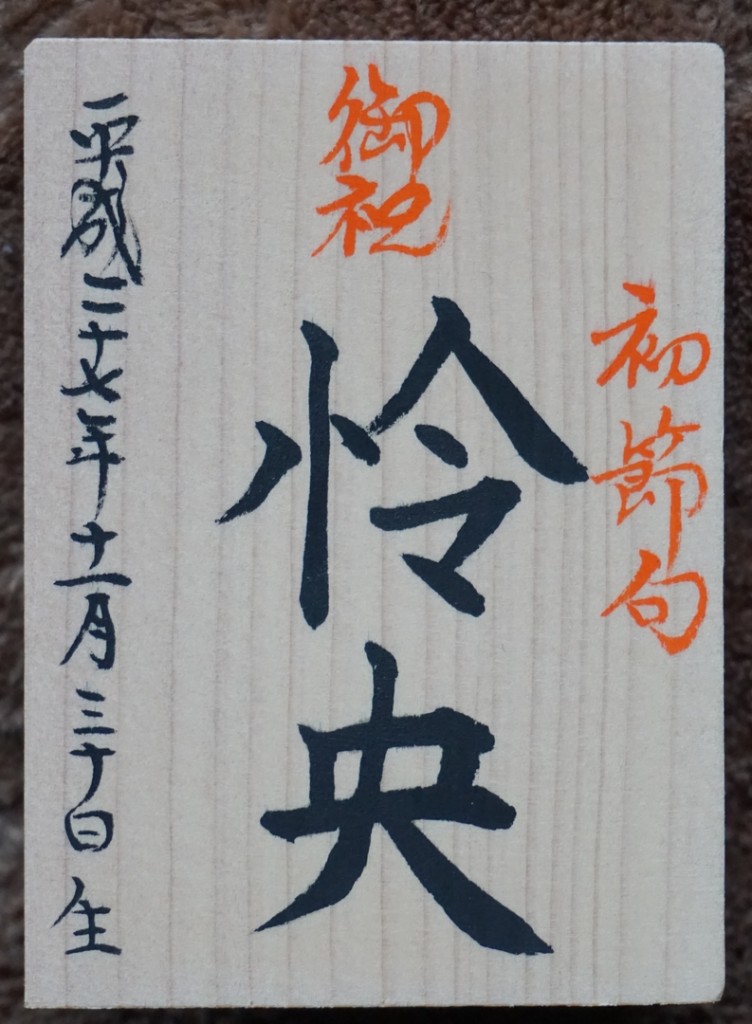 初節句
御祝
怜央
平成二十七年十一月三十日生